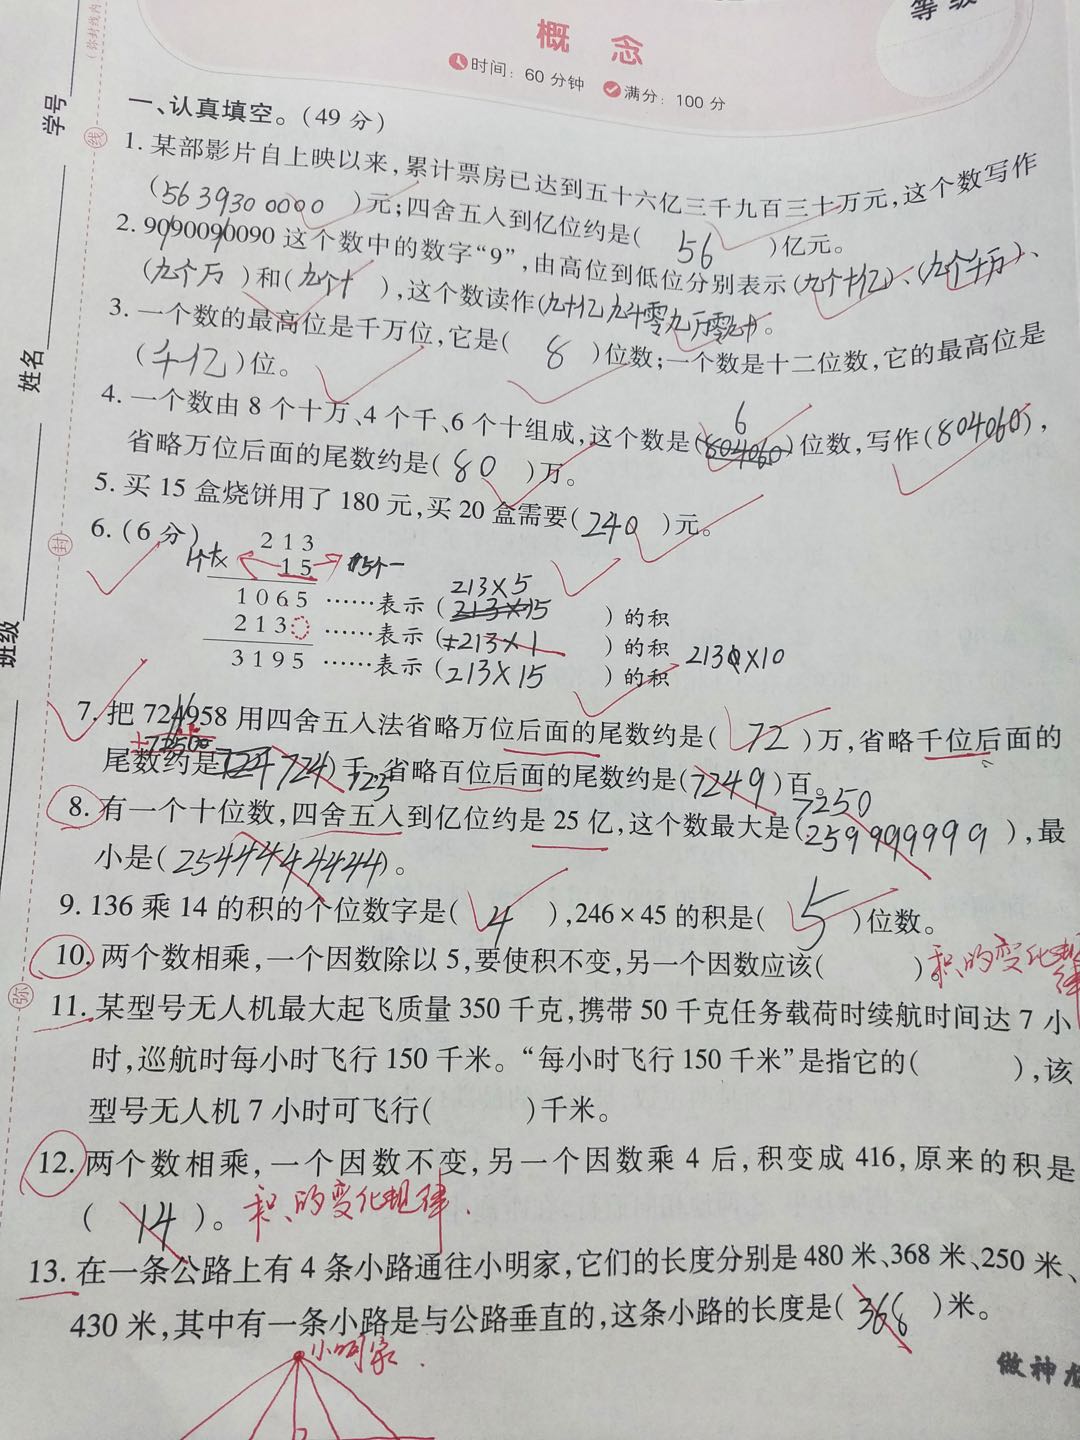 等级
概念
时间：60分钟 满分：100分
一、认真填空。（49分）
1. 某部影片自上映以来，累计票房已达到五十六亿三千九百三十万元，这个数写作
（5639300000）元；四舍五入到亿位约是（56）亿元。
2. 9090090090这个数中的数字“9”，由高位到低位分别表示（九个十亿）、（九个千万）、
（九个万）和（九个十），这个数读作（九十亿九千零九万零九十）。
3. 一个数的最高位是千万位，它是（8）位数；一个数是十二位数，它的最高位是
（千亿）位。
6
4. 一个数由8个十万、4个千、6个十组成，这个数是（804060）位数，写作（804060），
省略万位后面的尾数约是（80）万。
5. 买15盒烧饼用了180元，买20盒需要（240）元。
6.（6分）
213
15 5个一
213×5
1065 ……表示（213×15）的积
213 ……表示（213×1）的积 2130×10
3195 ……表示（213×15）的积
7. 把724958用四舍五入法省略万位后面的尾数约是（72）万，省略千位后面的
尾数约是（724）千，省略百位后面的尾数约是（7249）百。
725
7250
8. 有一个十位数，四舍五入到亿位约是25亿，这个数最大是（2599999999），最
小是（2544444444）。
9. 136乘14的积的个位数字是（4），246×45的积是（5）位数。
10. 两个数相乘，一个因数除以5，要使积不变，另一个因数应该（ ）。积的变化规律
11. 某型号无人机最大起飞质量350千克，携带50千克任务载荷时续航时间达7小
时，巡航时每小时飞行150千米。“每小时飞行150千米”是指它的（ ），该
型号无人机7小时可飞行（ ）千米。
12. 两个数相乘，一个因数不变，另一个因数乘4后，积变成416，原来的积是
（14）。积的变化规律.
13. 在一条公路上有4条小路通往小明家，它们的长度分别是480米、368米、250米、
430米，其中有一条小路是与公路垂直的，这条小路的长度是（368）米。
小明家.
做神龙
学号
姓名
班级
线
封
弥